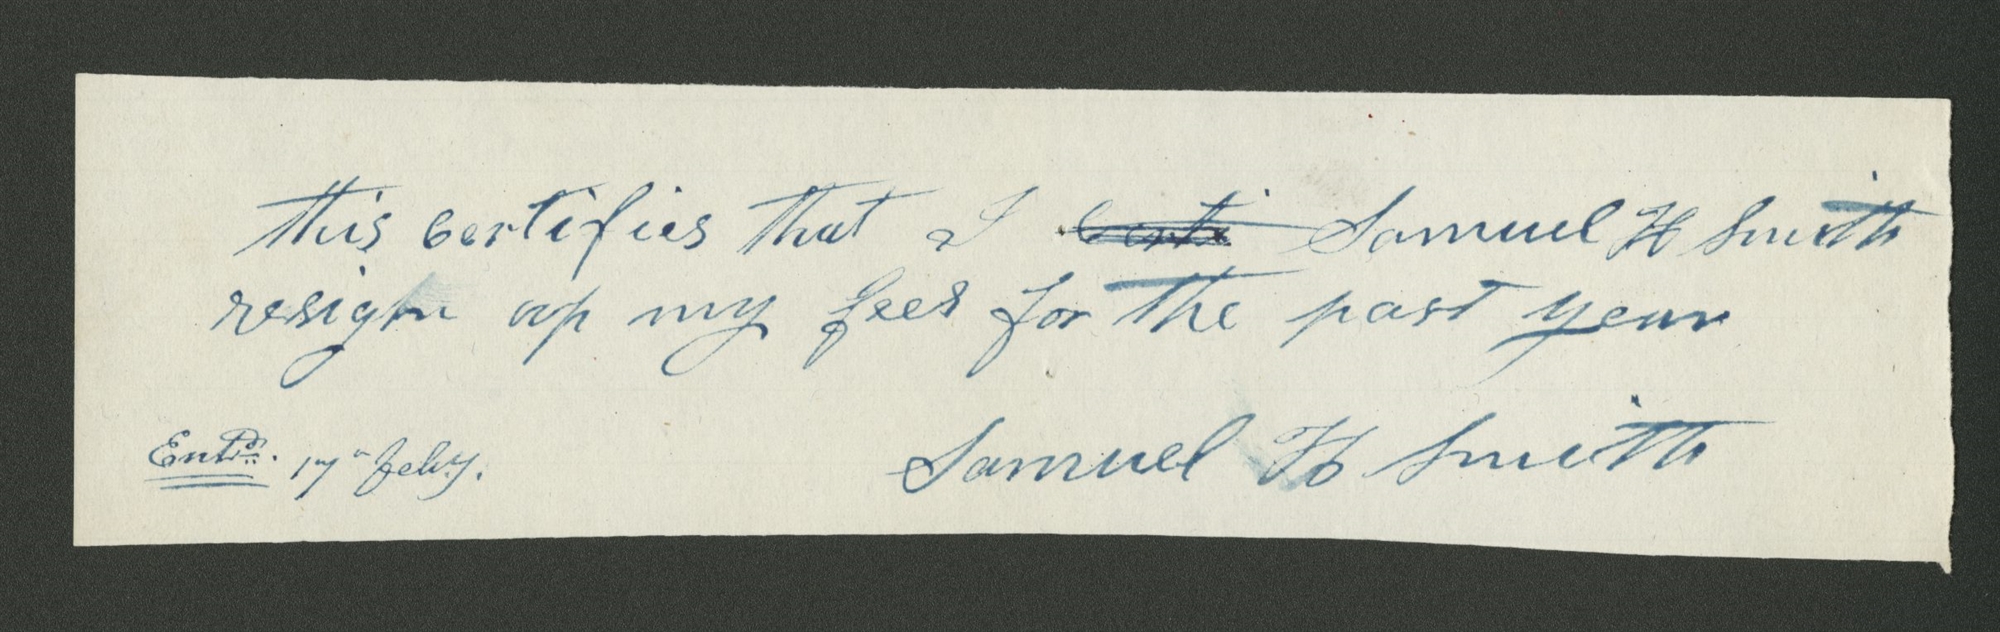 this certifies that I certi Samuel H Smith
resign up my fees for the past year
Samuel H Smith
Entd. 17" feby.